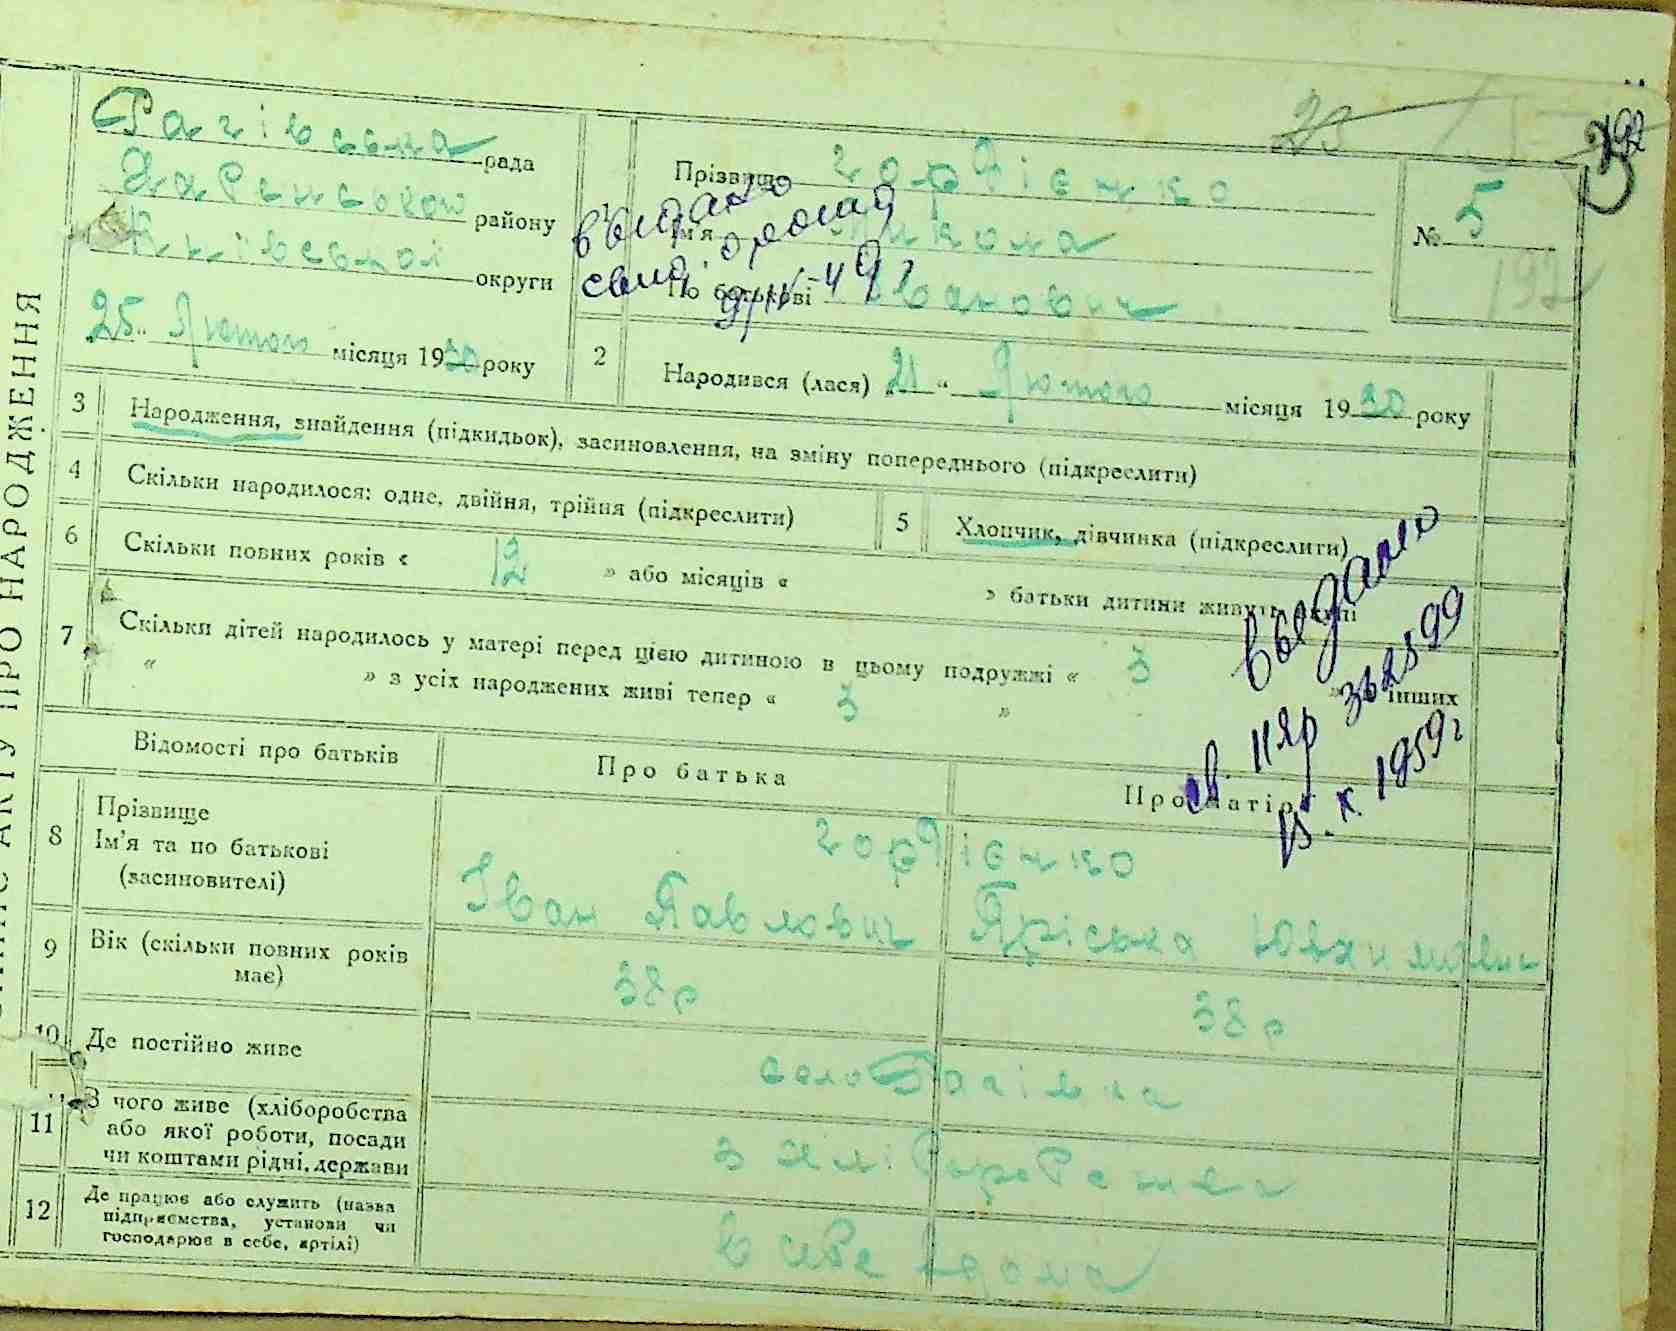 Рагівська рада
району
округи
25 Лютого місяця 1930 року
1
Прізвище Гордієнко
Ім'я Микола
По батькові Іванович
видано
№ 5
192
2
Народився (лася) 21 " Лютого місяця 1930 року
3
Народження, знайдення (підкидьок), засиновлення, на зміну попереднього (підкреслити)
4
Скільки народилося: одне, двійня, трійня (підкреслити)
5
Хлопчик, дівчинка (підкреслити)
6
Скільки повних років « 12 » або місяців « » батьки дитини живуть
7
Скільки дітей народилось у матері перед цією дитиною в цьому подружжі « 3
» інших
« » з усіх народжених живі тепер « 3 »
выдано
св. 1959г
Відомості про батьків
Про батька
Про матір
8
Прізвище
Ім'я та по батькові
(засиновителі)
Гордієнко
Іван Павлович
Пріська
9
Вік (скільки повних років має)
38 р
38 р
10
Де постійно живе
село
11
З чого живе (хліборобства
або якої роботи, посади
чи коштами рідні, держави
з хліборобства
12
Де працює або служить (назва
підприємства, установи чи
господарює в себе, артілі)
в себе вдома
АКТУ ПРО НАРОДЖЕННЯ